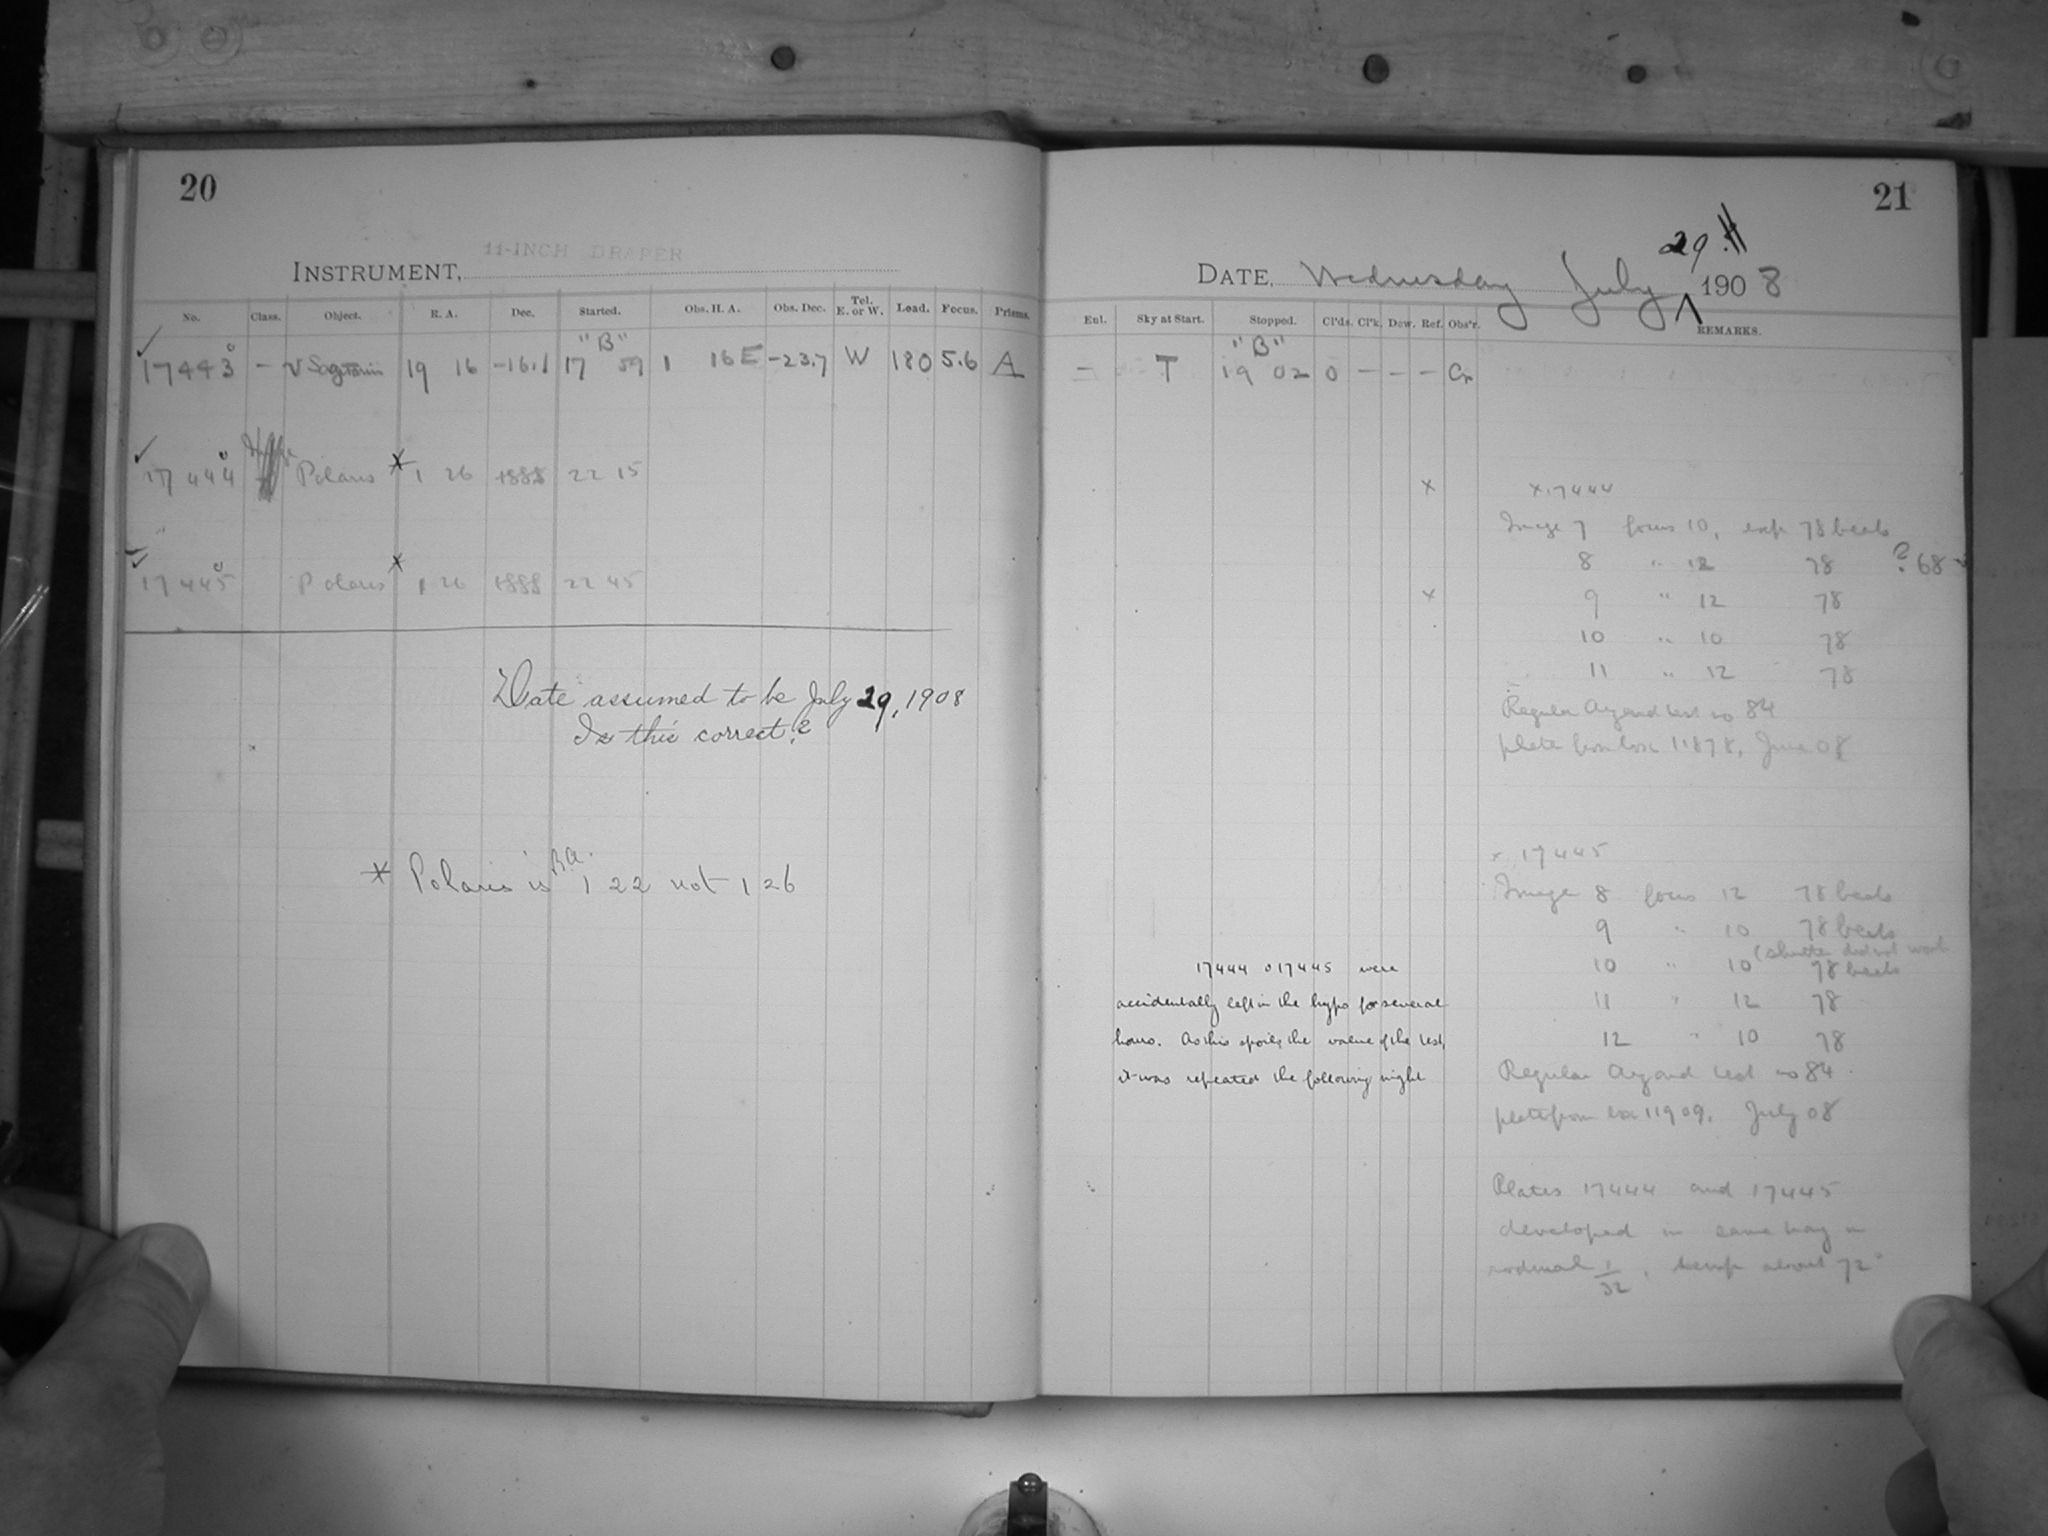 20
11-INCH DRAPER
INSTRUMENT,
No. Class. Object. R. A. Dec. Started. Obs. H. A. Obs. Dec. Tel. E. or W. Load. Focus. Prisms.
"B"
17443 – υ Sagittarii 19 16 -16.1 17 59 1 16 E -23.7 W 180 5.6 A
17444 Polaris * 1 26 +888 22 15
17445 Polaris * 1 26 +888 22 45
Date assumed to be July 29, 1908
Is this correct?
R.A.
* Polaris is 1 22 not 1 26
21
29
DATE, Wednesday July 1908
Eul. Sky at Start. Stopped. Cl'ds. Cl'k. Dew. Ref. Obs'r. REMARKS.
"B"
– T 19 02 0 – – – Cr
x x 17444
Image 7 focus 10, exp 78 beats
8 " 12 78 ? 68
x 9 " 12 78
10 " 10 78
11 " 12 78
Regular Argand test no 84
plate from box 11878, June 08
x 17445
Image 8 focus 12 78 beats
9 " 10 78 beats
(shutter did not work
10 " 10 78 beats
11 " 12 78
12 " 10 78
Regular Argand test no 84
plate from box 11909, July 08
17444 17445 were
accidentally left in the hypo for several
hours. As this spoils the value of the test,
it was repeated the following night
Plates 17444 and 17445
developed in same tray in
rodinal 1/32, temp about 72°